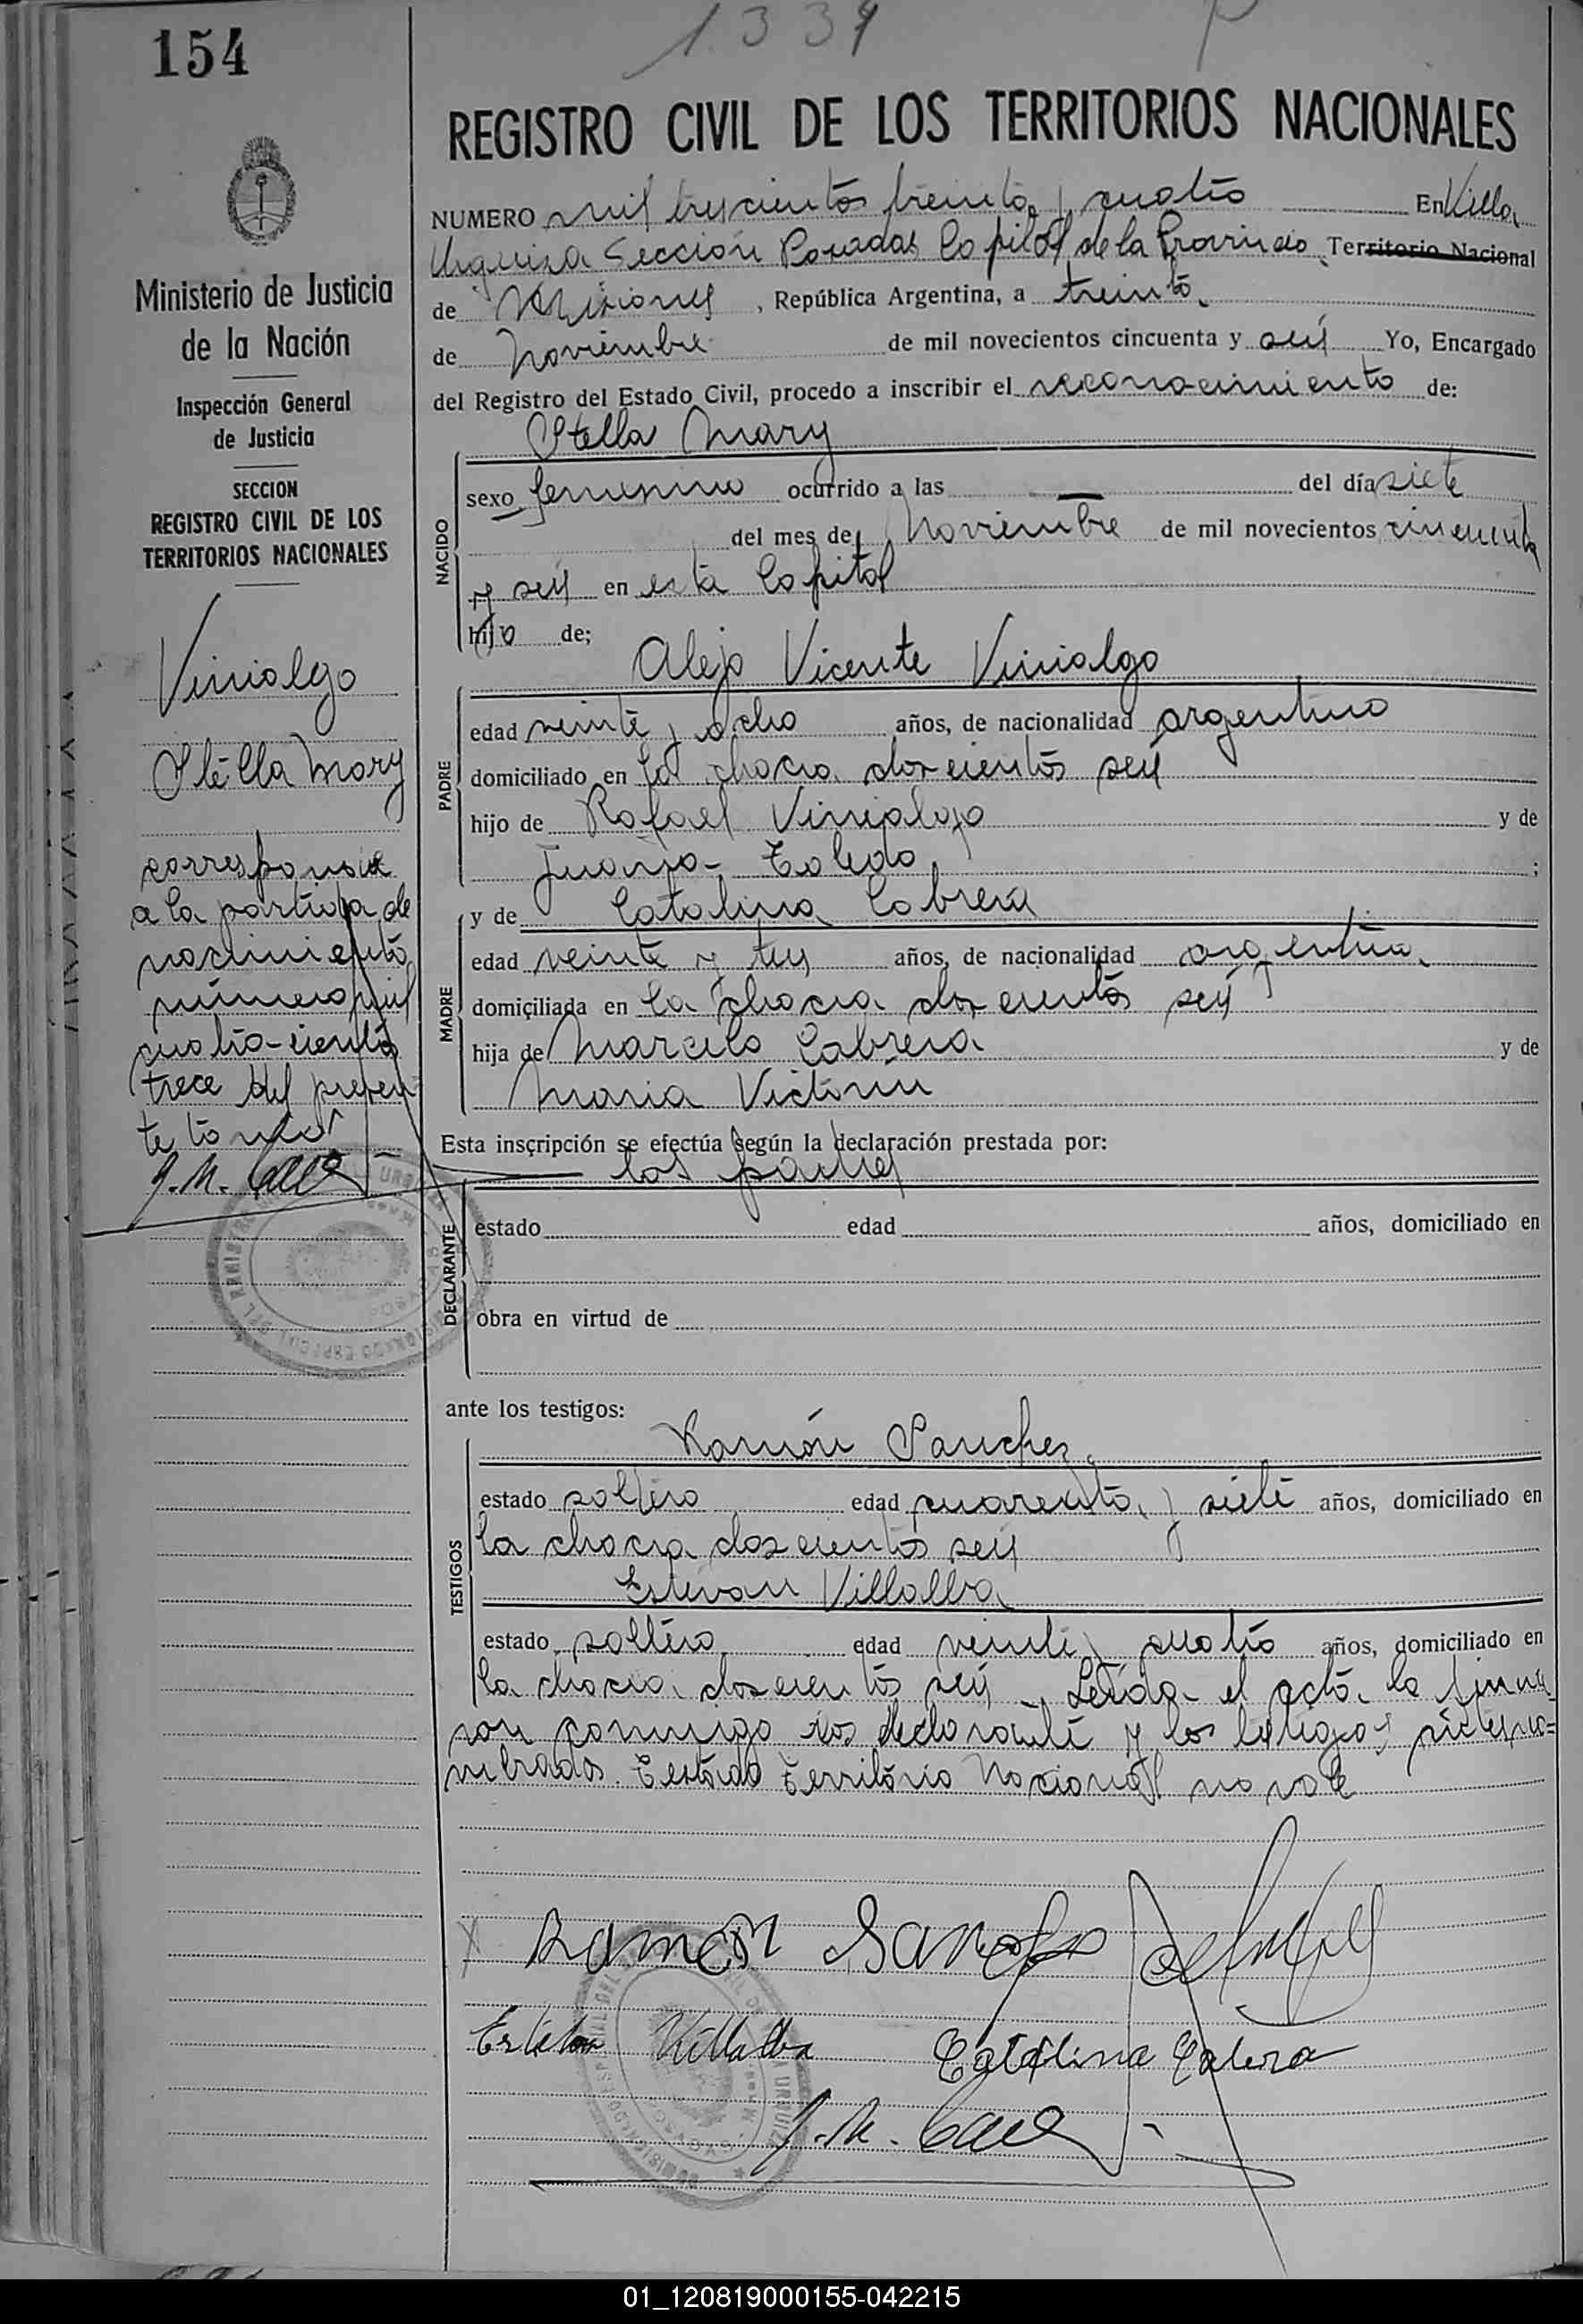 154
1334
REGISTRO CIVIL DE LOS TERRITORIOS NACIONALES
NUMERO mil trescientos treinta y cuatro En Villa
Urquiza Sección Posadas Capital de la Provincia Territorio Nacional
de Misiones, República Argentina, a treinta
de Noviembre de mil novecientos cincuenta y seis Yo, Encargado
del Registro del Estado Civil, procedo a inscribir el reconocimiento de:
Stella Mary
NACIDO
sexo femenino ocurrido a las — del día siete
del mes de Noviembre de mil novecientos cincuenta
y seis en esta Capital
hija de;
Alejo Vicente Vinialgo
PADRE
edad veinte y ocho años, de nacionalidad argentino
domiciliado en la chacra doscientos seis
hijo de Rafael Vinialgo y de
Juana Toledo;
MADRE
y de Catalina Cabrera
edad veinte y tres años, de nacionalidad argentina
domiciliada en la chacra doscientos seis
hija de Marcelo Cabrera y de
Maria Victorin
Esta inscripción se efectúa según la declaración prestada por:
los padres
DECLARANTE
estado edad años, domiciliado en
obra en virtud de
ante los testigos:
Ramón Sanchez
TESTIGOS
estado soltero edad cuarenta y siete años, domiciliado en
la chacra doscientos seis
Estevan Villalba
estado soltero edad veinte y cuatro años, domiciliado en
la chacra doscientos seis. Leída el acta, la firma
ron conmigo los declarante y los testigos
nombrados. Testado Territorio Nacional no vale
Ramon
Esteban Villalba Catalina
Ministerio de Justicia
de la Nación
Inspección General
de Justicia
SECCION
REGISTRO CIVIL DE LOS
TERRITORIOS NACIONALES
Vinialgo
Stella Mary
corresponde
a la partida de
nacimiento
número mil
cuatrocientos
trece del presen
te tomo
01_120819000155-042215